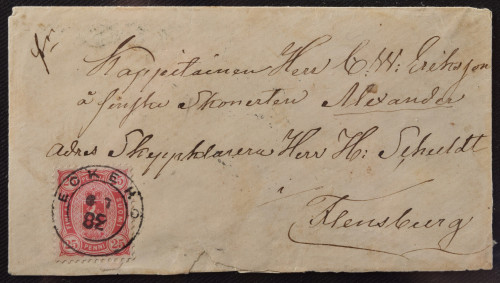 fr
Kappitainen Herr C. W. Eriksson
å finska Skonerten Alexander
adres Skeppsklarera Herr H: Schuldt
i
Flensburg
ECKERÖ
7
82
25 PENNI 25